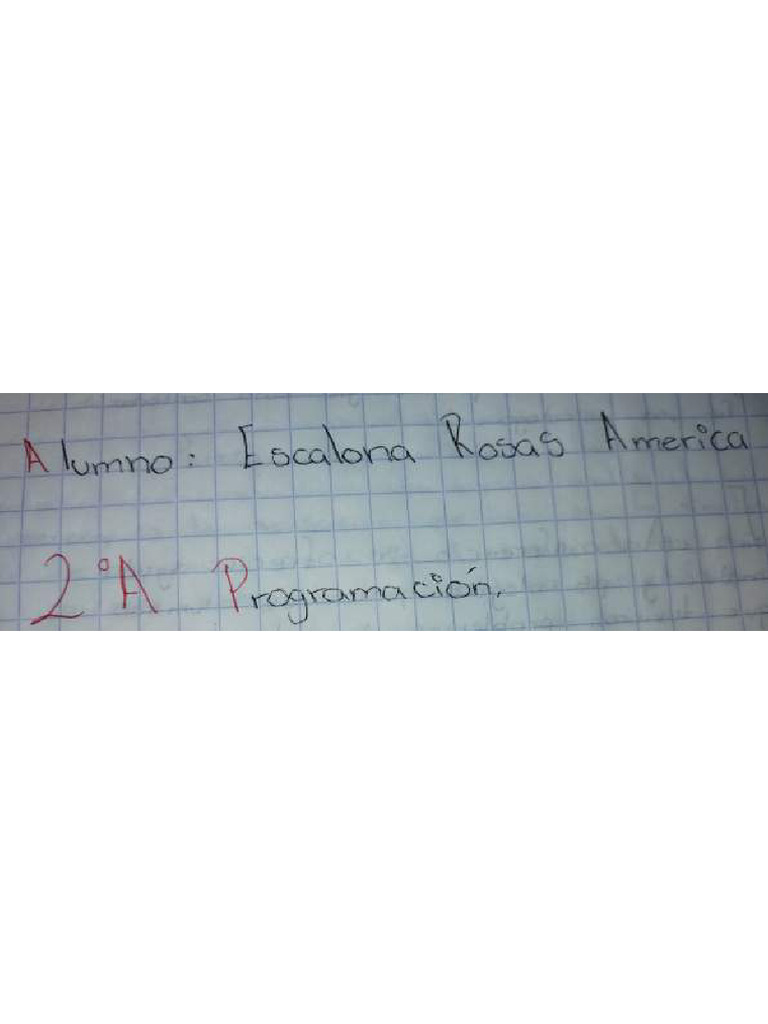 Alumno: Escalona Rosas America
2°A Programación.